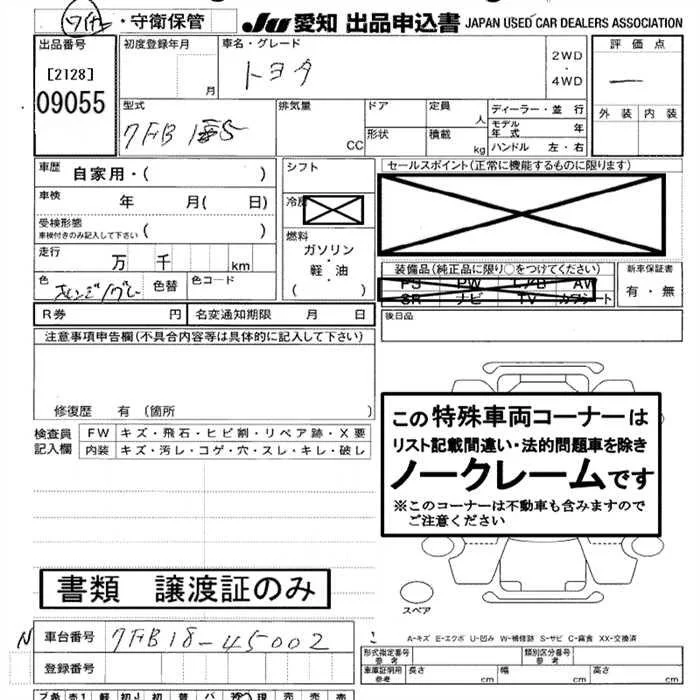 ・守衛保管 JU 愛知 出品申込書 JAPAN USED CAR DEALERS ASSOCIATION
出品番号 初度登録年月 車名・グレード 2WD・4WD 評価点
[2128] 月 トヨタ 一
09055
型式 排気量 ドア 定員 ディーラー・並行 外装 内装
7FB 人 モデル年式 年
CC 形状 積載 kg ハンドル 左・右
車歴 自家用・( ) シフト セールスポイント(正常に機能するものに限ります)
車検 年 月( 日)
受検形態 ( )
車検付きのみ記入して下さい
燃料
走行 万 千 km ガソリン・軽・油 ( )
装備品(純正品に限り○をつけてください) 新車保証書
PS PW AW 有・無
SR ナビ TV カワシート
色 オレンジ/グレー 色替 色コード
R券 円 名変通知期限 月 日 後日品
注意事項申告欄(不具合内容等は具体的に記入して下さい)
修復歴 有(箇所 )
検査員記入欄 FW キズ・飛石・ヒビ割・リペア跡・X要
内装 キズ・汚レ・コゲ・穴・スレ・キレ・破レ
この特殊車両コーナーは
リスト記載間違い・法的問題車を除き
ノークレームです
※このコーナーは不動車も含みますので
ご注意ください
書類 譲渡証のみ
スペア
N 車台番号 7FB18-45002
A-キズ E-エクボ U-凹み W-補修跡 S-サビ C-腐食 XX-交換済
登録番号
形式指定番号 参考 類別区分番号 参考
車庫証明用 参考 長さ cm 幅 cm 高さ cm